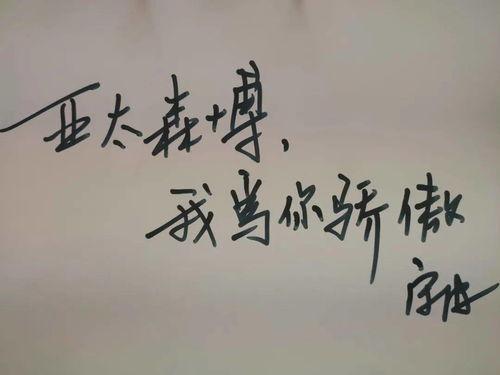 亚太森博，
我为你骄傲